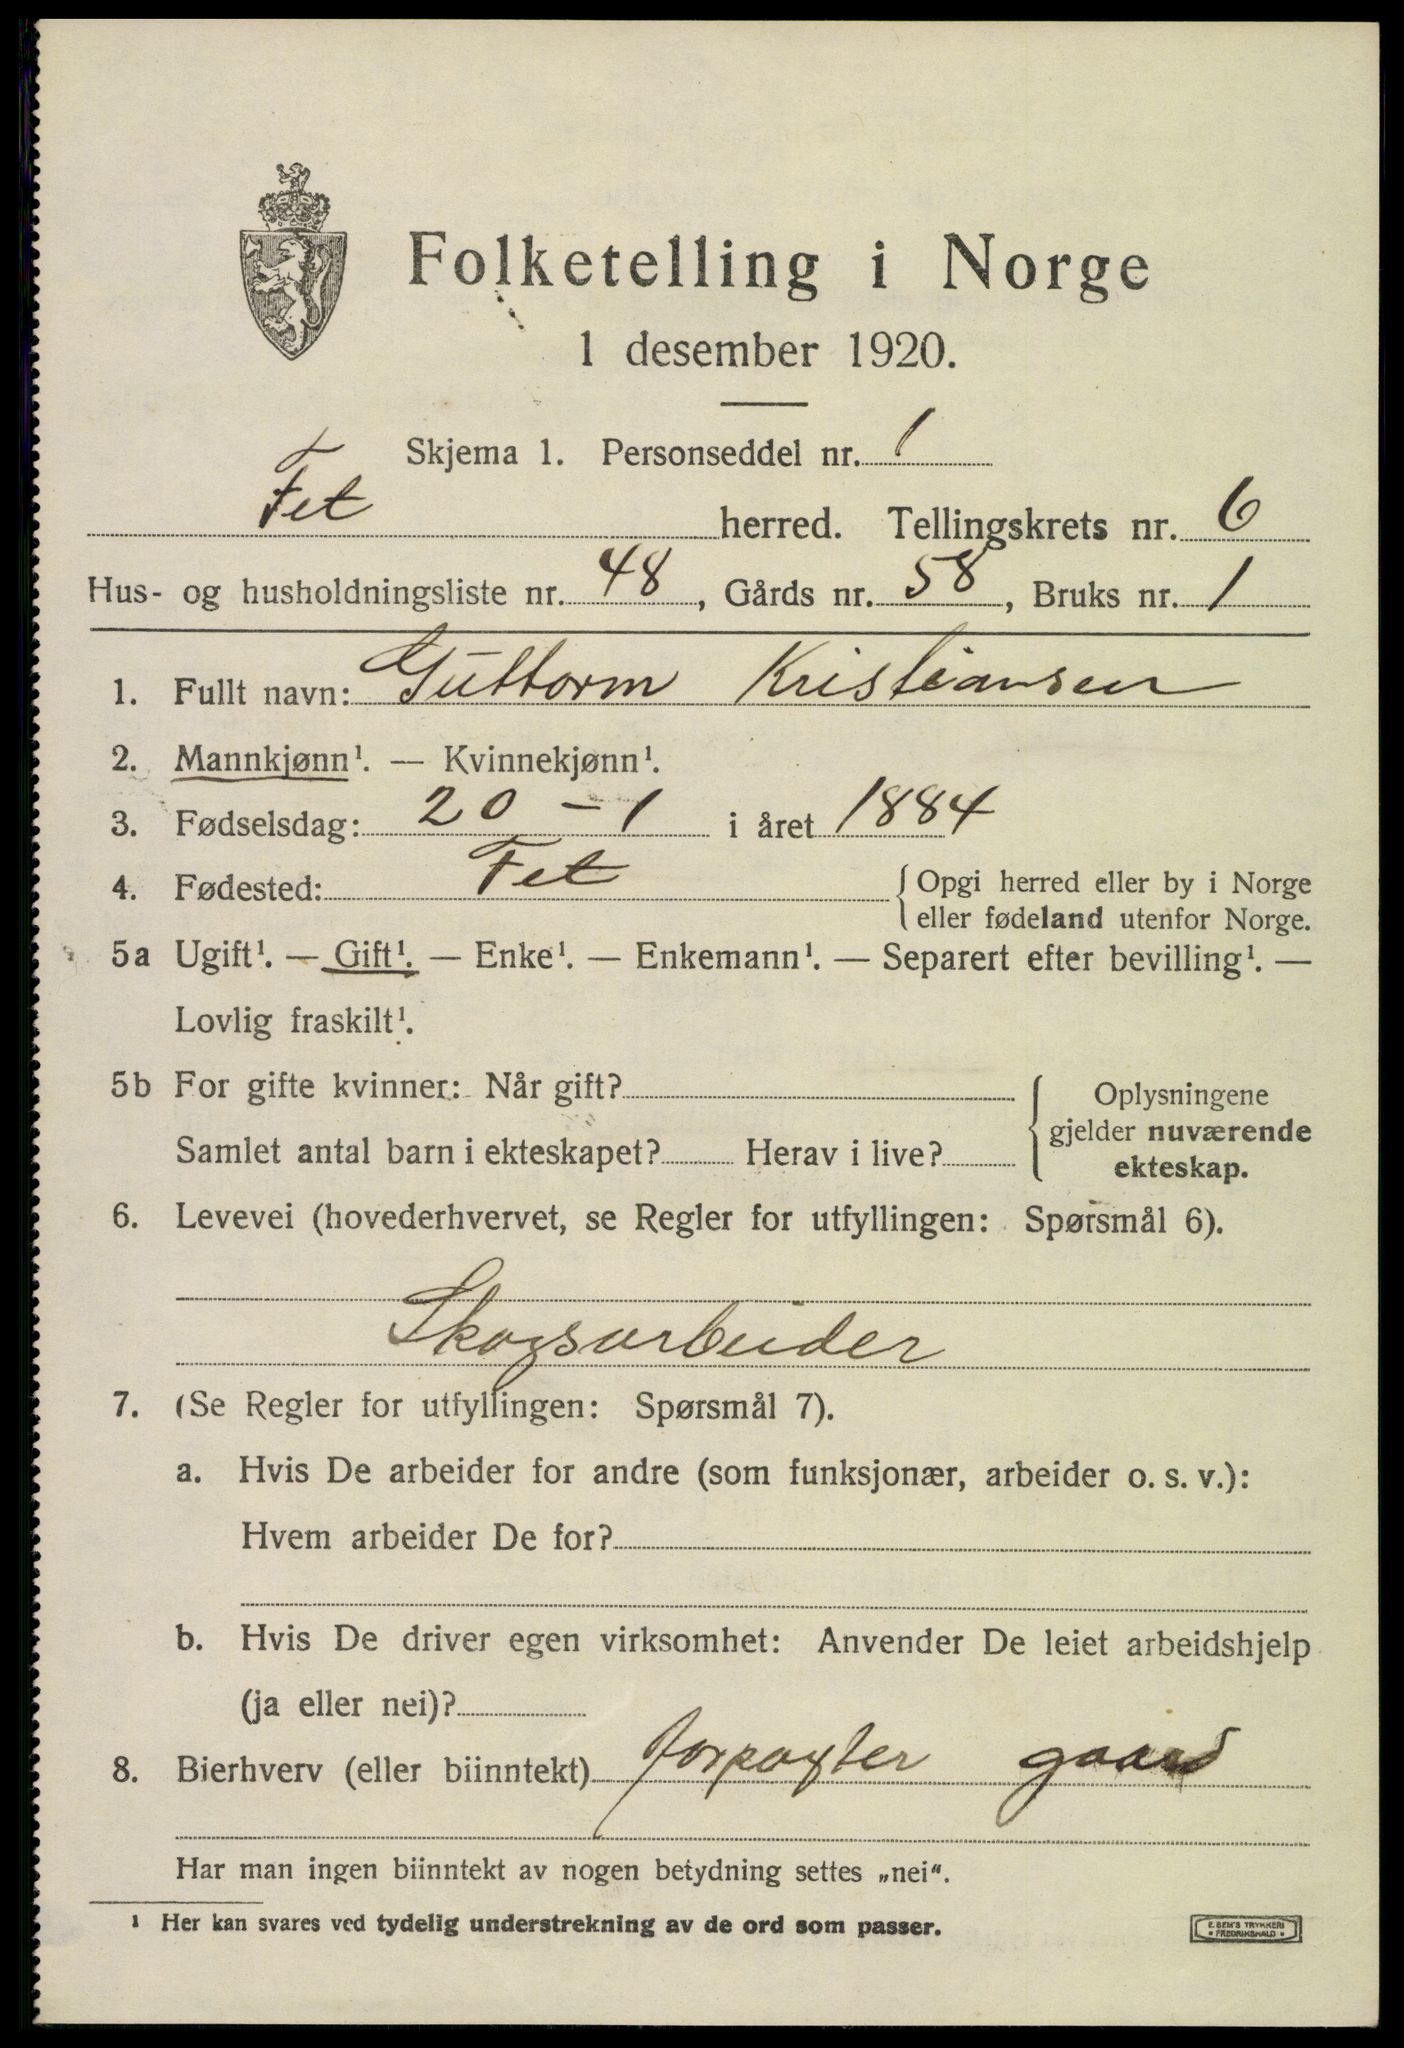 Folketelling i Norge
1 desember 1920.
Skjema 1. Personseddel nr. 1
Fet herred. Tellingskrets nr. 6
Hus- og husholdningsliste nr. 48, Gårds nr. 58, Bruks nr. 1
1. Fullt navn: Guttorm Kristiansen
2. Mannkjønn¹. — Kvinnekjønn¹.
3. Fødselsdag: 20 – 1 i året 1884
4. Fødested: Fet { Opgi herred eller by i Norge
eller fødeland utenfor Norge.
5a Ugift¹. — Gift¹. — Enke¹. — Enkemann¹. — Separert efter bevilling¹. —
Lovlig fraskilt¹.
5b For gifte kvinner: Når gift? { Oplysningene
gjelder nuværende
Samlet antal barn i ekteskapet? Herav i live?
ekteskap.
6. Levevei (hovederhvervet, se Regler for utfyllingen: Spørsmål 6).
Skogsarbeider
7. (Se Regler for utfyllingen: Spørsmål 7).
a. Hvis De arbeider for andre (som funksjonær, arbeider o. s. v.):
Hvem arbeider De for?
b. Hvis De driver egen virksomhet: Anvender De leiet arbeidshjelp
(ja eller nei)?
8. Bierhverv (eller biinntekt) forpagter gaard
Har man ingen biinntekt av nogen betydning settes „nei“.
¹ Her kan svares ved tydelig understrekning av de ord som passer.
E. SEM'S TRYKKERI
* FREDRIKSHALD *